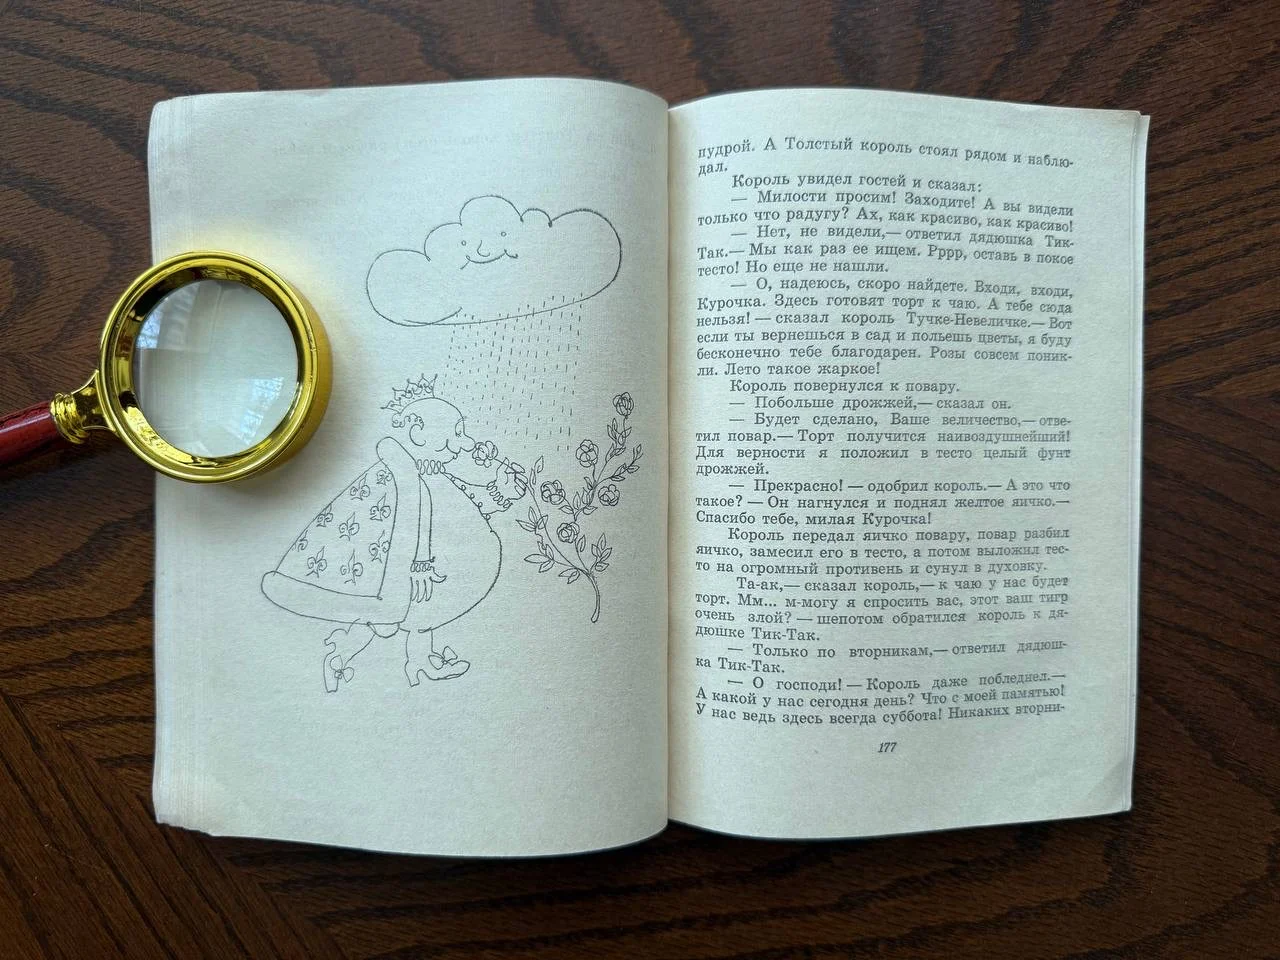 пудрой. А Толстый король стоял рядом и наблю-
дал.
Король увидел гостей и сказал:
— Милости просим! Заходите! А вы видели
только что радугу? Ах, как красиво, как красиво!
— Нет, не видели,— ответил дядюшка Тик-
Так.— Мы как раз ее ищем. Рррр, оставь в покое
тесто! Но еще не нашли.
— О, надеюсь, скоро найдете. Входи, входи,
Курочка. Здесь готовят торт к чаю. А тебе сюда
нельзя! — сказал король Тучке-Невеличке.— Вот
если ты вернешься в сад и польешь цветы, я буду
бесконечно тебе благодарен. Розы совсем поник-
ли. Лето такое жаркое!
Король повернулся к повару.
— Побольше дрожжей,— сказал он.
— Будет сделано, Ваше величество,— отве-
тил повар.— Торт получится наивоздушнейший!
Для верности я положил в тесто целый фунт
дрожжей.
— Прекрасно! — одобрил король.— А это что
такое? — Он нагнулся и поднял желтое яичко.—
Спасибо тебе, милая Курочка!
Король передал яичко повару, повар разбил
яичко, замесил его в тесто, а потом выложил тес-
то на огромный противень и сунул в духовку.
Та-ак,— сказал король,— к чаю у нас будет
торт. Мм... м-могу я спросить вас, этот ваш тигр
очень злой? — шепотом обратился король к дя-
дюшке Тик-Так.
— Только по вторникам,— ответил дядюш-
ка Тик-Так.
— О господи! — Король даже побледнел.—
А какой у нас сегодня день? Что с моей памятью!
У нас ведь здесь всегда суббота! Никаких вторни-
177